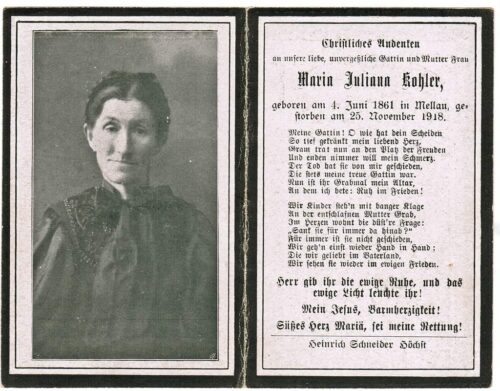 Christliches Andenken
an unsere liebe, unvergeßliche Gattin und Mutter Frau
Maria Juliana Kohler,
geboren am 4. Juni 1861 in Mellau, ge-
storben am 25. November 1918.
Meine Gattin! O wie hat dein Scheiden
So tief gekränkt mein liebend Herz,
Gram trat nun an den Platz der Freuden
Und enden nimmer will mein Schmerz.
Der Tod hat sie von mir geschieden,
Die stets meine treue Gattin war.
Nun ist ihr Grabmal mein Altar,
An dem ich bete: Ruh im Frieden!
Wir Kinder steh'n mit banger Klage
An der entschlafnen Mutter Grab,
Im Herzen wohnt die düst're Frage:
„Sank sie für immer da hinab?"
Für immer ist sie nicht geschieden,
Wir geh'n einst wieder Hand in Hand;
Die wir geliebt im Vaterland,
Wir sehen sie wieder im ewigen Frieden.
Herr gib ihr die ewige Ruhe, und das
ewige Licht leuchte ihr!
Mein Jesus, Barmherzigkeit!
Süßes Herz Mariä, sei meine Rettung!
Heinrich Schneider Höchst